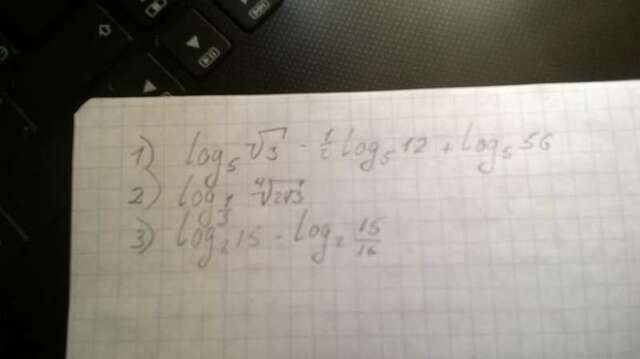 1) log₅ √3 - 1/2 log₅ 12 + log₅ 56
2) log 1/3 ⁴√243
3) log₂ 15 - log₂ 15/16